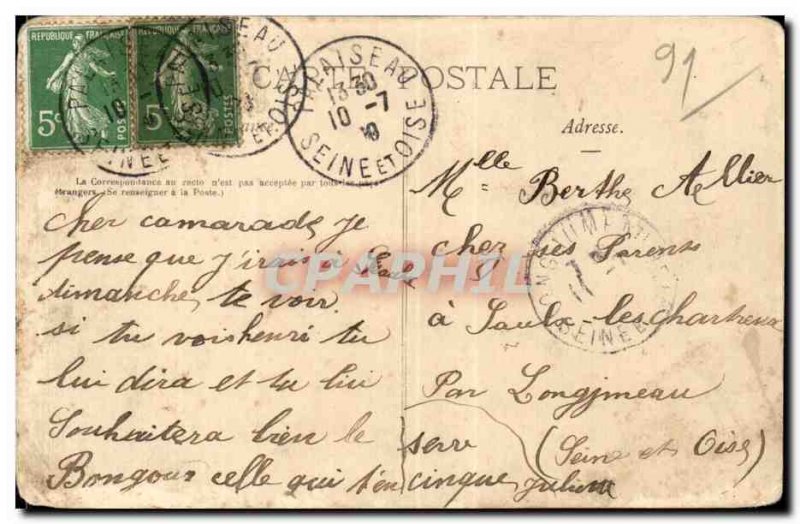 RÉPUBLIQUE FRANÇAISE
RÉPUBLIQUE FRANÇAISE
5c POSTES
5c POSTES
PALAISEAU
13 30
10 -7
10
SEINE ET OISE
CARTE POSTALE
91
Adresse.
La Correspondance au recto n'est pas acceptée par tous les pays
étrangers. (Se renseigner à la Poste.)
Cher camarade je
pense que j'irais à Saulx
dimanche te voir
si tu vois henri tu
lui dira et tu lui
Souhaitera bien le
Bongour celle qui t'en
serre cinque juliette
Mlle Berthe Allier
cher ses Parents
à Saulx-les Chartreux
Par Longjmeau
(Seine et Oise)
LONGJUMEAU
SEINE ET OISE
CPAPHIL